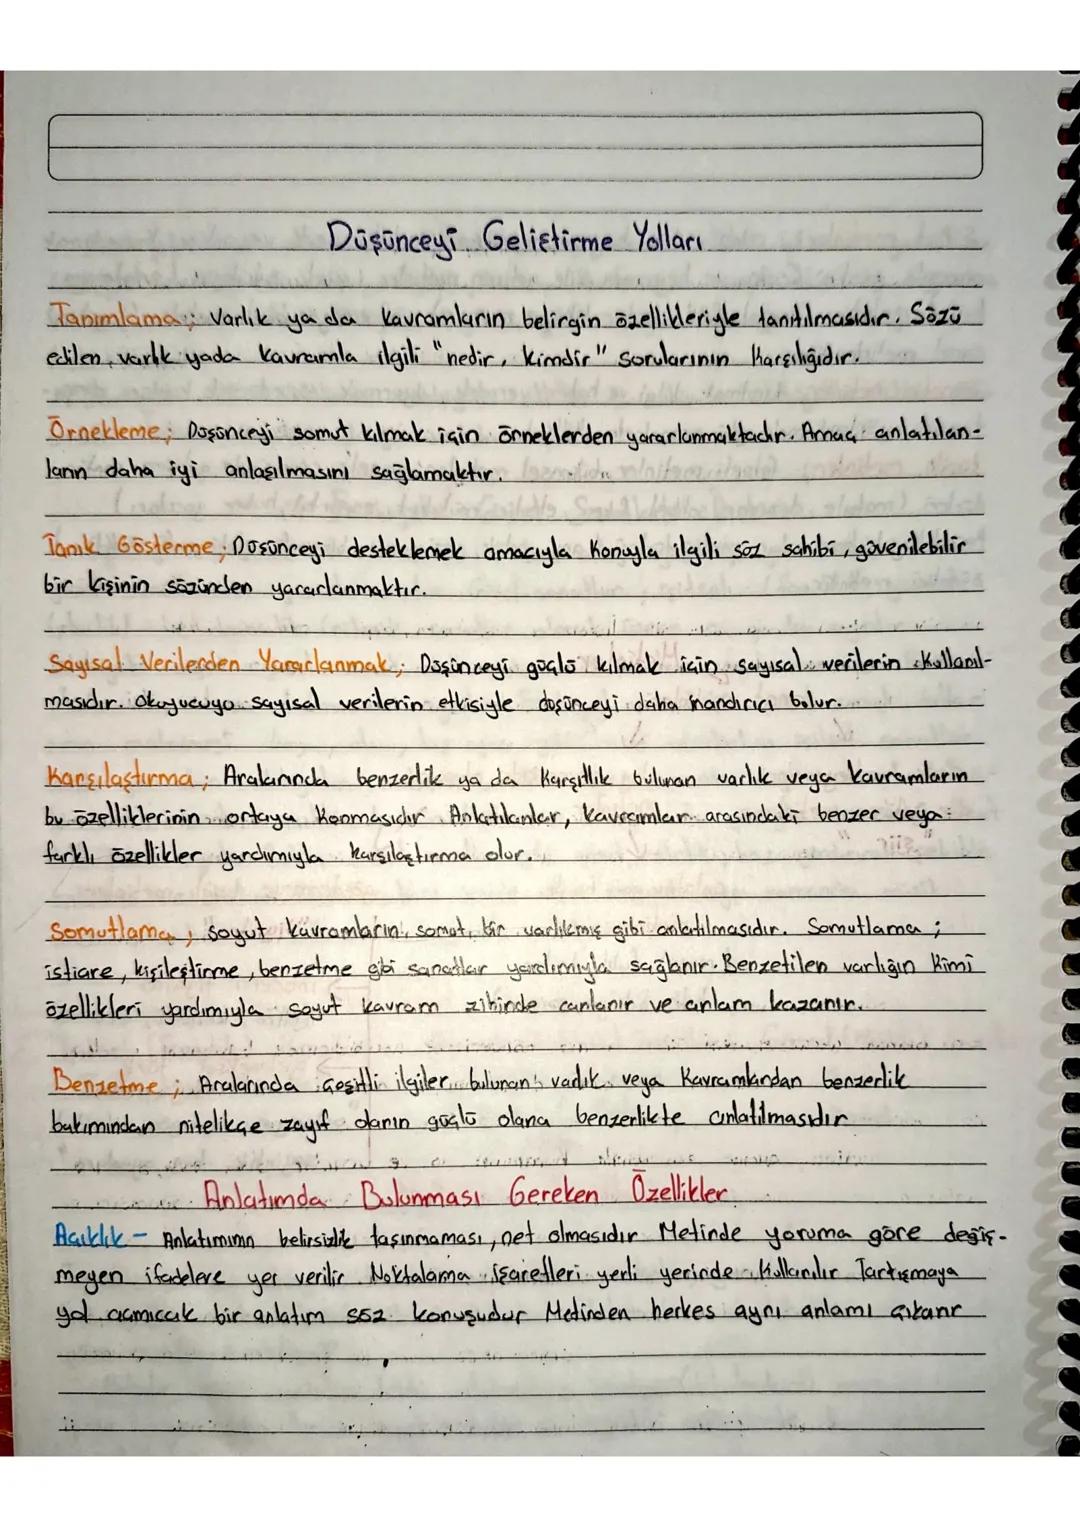 Düşünceyi Geliştirme Yolları
Tanımlama ; Varlık ya da kavramların belirgin özellikleriyle tanıtılmasıdır. Sözü
edilen varlık yada kavramla ilgili "nedir, kimdir" sorularının karşılığıdır.
Örnekleme ; Düşünceyi somut kılmak için örneklerden yararlanmaktadır. Amaç anlatılan-
ların daha iyi anlaşılmasını sağlamaktır.
Tanık Gösterme ; Düşünceyi desteklemek amacıyla konuyla ilgili söz sahibi, güvenilebilir
bir kişinin sözünden yararlanmaktır.
Sayısal Verilerden Yararlanmak ; Düşünceyi güçlü kılmak için sayısal verilerin kullanıl-
masıdır. Okuyucuyo sayısal verilerin etkisiyle düşünceyi daha inandırıcı bulur.
Karşılaştırma ; Aralarında benzerlik ya da karşıtlık bulunan varlık veya kavramların
bu özelliklerinin ortaya konmasıdır Anlatılanlar, kavramlar arasındaki benzer veya
farklı özellikler yardımıyla karşılaştırma olur.
Somutlama ; soyut kavramların, somut bir varlıkmış gibi anlatılmasıdır. Somutlama ;
istiare, kişileştirme, benzetme gibi sanatlar yardımıyla sağlanır. Benzetilen varlığın kimi
özellikleri yardımıyla soyut kavram zihinde canlanır ve anlam kazanır.
Benzetme ; Aralarında çeşitli ilgiler bulunan varlık veya kavramlardan benzerlik
bakımından nitelikçe zayıf olanın güçlü olana benzerlikte anlatılmasıdır
Anlatımda Bulunması Gereken Özellikler
Açıklık - Anlatımımn belirsizlik taşınmaması, net olmasıdır Metinde yoruma göre değiş-
meyen ifadelere yer verilir Noktalama işaretleri yerli yerinde kullanılır Tartışmaya
yol açmıcak bir anlatım söz konuşudur Metinden herkes aynı anlamı çıkarır